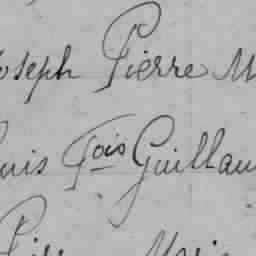 oseph Pierre M
ouis Fois Guillau
Pi Mari